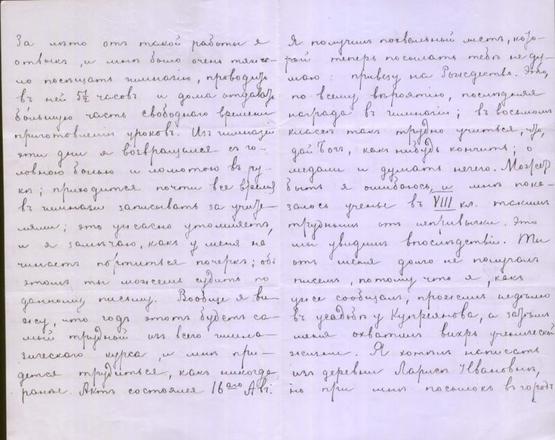 За лѣто отъ такой работы я
отвыкъ, и мнѣ было очень тяже-
ло посѣщать гимназію, проводить
въ ней 5½ часовъ и дома отдавать
большую часть свободнаго времени
приготовленію уроковъ. Изъ гимназіи
эти дни я возвращался съ го-
ловною болью и ломотою въ ру-
кѣ; приходится почти все время
въ гимназіи записывать за учите-
лями; это ужасно утомляетъ,
и я замѣчаю, какъ у меня на-
чинаетъ портиться почеркъ; объ
этомъ ты можешь судить по
данному письму. Вообще я ви-
жу, что годъ этотъ будетъ са-
мый трудный изъ всего гимна-
зическаго курса, и мнѣ при-
дется трудиться, какъ никогда
раньше. Актъ состоялся 16ого Авг.
Я получилъ похвальный листъ, кото-
рый теперь посылать тебѣ не ду-
маю: привезу на Рождество. Это,
по всему вѣроятію, послѣдняя
награда въ гимназіи; въ восьмомъ
классѣ такъ трудно учиться, что,
дай Богъ, какъ нибудь кончить; о
медали и думать нечего. Можетъ
быть я ошибаюсь, и мнѣ пока-
залось ученье въ VIII кл. такимъ
труднымъ отъ непривычки. Это
мы увидимъ впослѣдствіи. Ты
отъ меня долго не получалъ
писемъ, потому что я, какъ
уже сообщалъ, прожилъ недѣлю
въ усадьбѣ у Купреянова, а затѣмъ
меня охватилъ вихрь ученической
жизни. Я хотѣлъ написать
изъ деревни Ларисѣ Ивановнѣ,
но при мнѣ посылокъ въ городъ